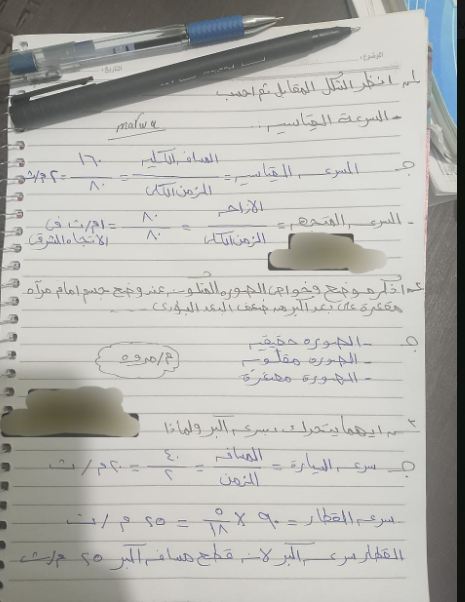 الموضوع:
التاريخ:
س١ انظر الشكل المقابل ثم احسب
- السرعة القياسيه..
malwa
ج السرعه القياسيه = المسافه الكليه / الزمن الكلى = ١٦٠ / ٨٠ = ٢ م/ث
- السرعه المتجهه = الازاحه / الزمن الكلى = ٨٠ / ٨٠ = ١م/ث فى الاتجاه الشرقى
س٢ اذكر موضع وخواص الصوره المتكونه عند وضع جسم امام مرآه
مقعرة على بعد اكبر من ضعف البعد البؤرى....
ج - الصوره حقيقيه
- الصوره مقلوبه
م/مروه
- الصورة مصغرة
س٣ ايهما يتحرك بسرعه اكبر ولماذا
ج سرعه السيارة = المسافه / الزمن = ٤٠ / ٢ = ٢٠ م/ث
سرعه القطار = ٩٠ × ٥ / ١٨ = ٢٥ م/ث
القطار سرعه اكبر لانه قطع مسافه اكبر ٢٥ م/ث